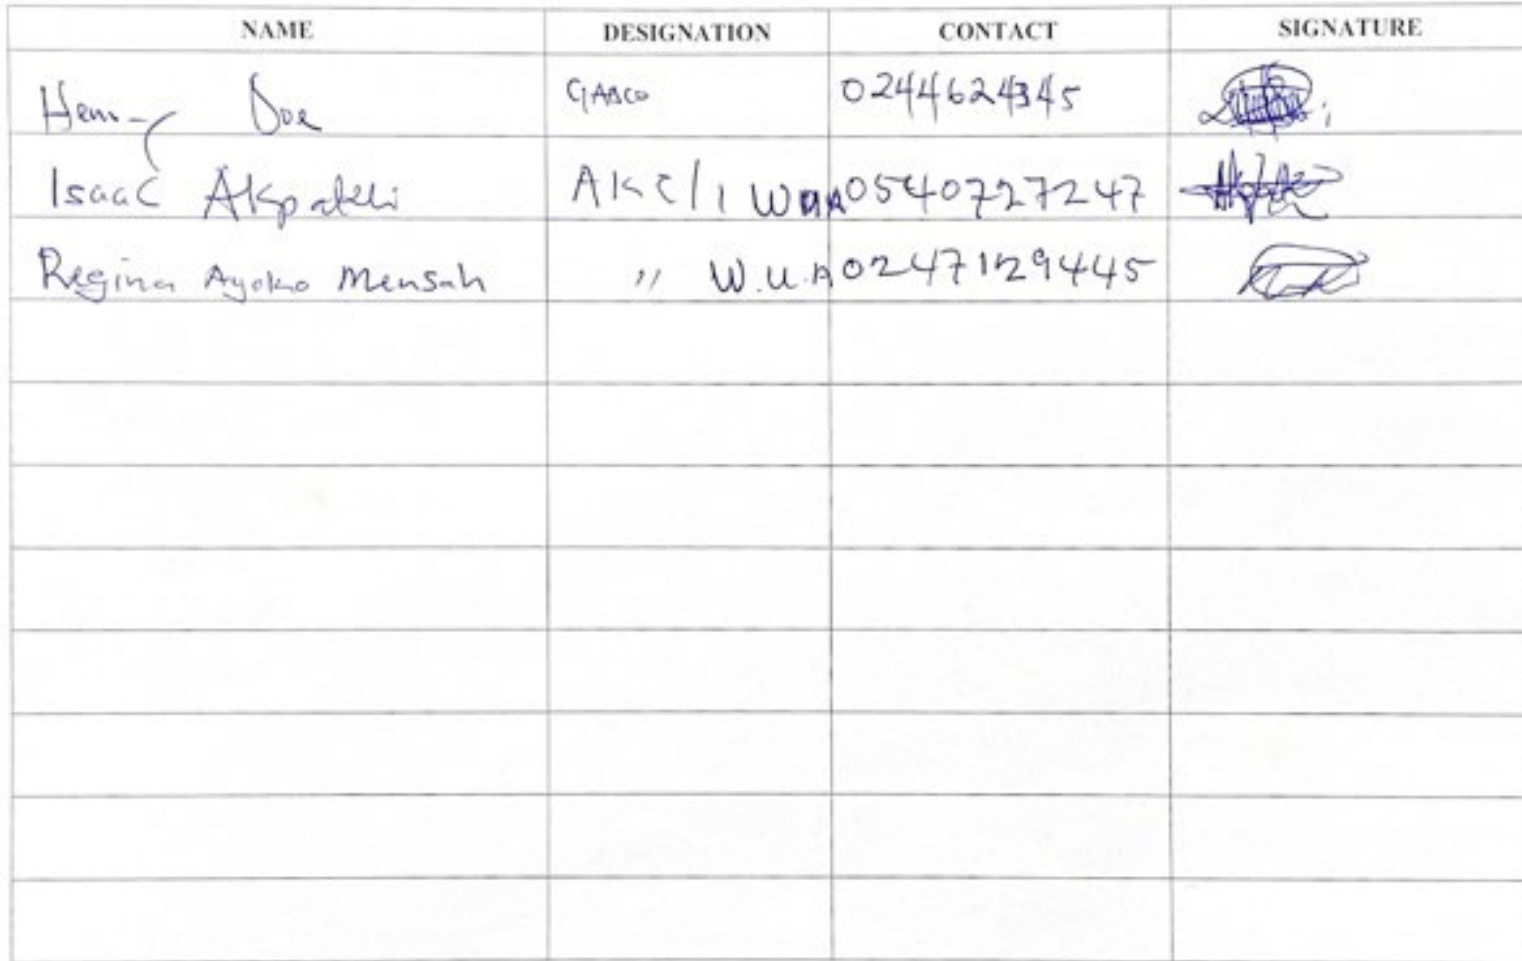 NAME DESIGNATION CONTACT SIGNATURE
Henry Doe GABCO 0244624345
Isaac Akpatehi AKC/1 WUA 0540727247
Regina Ayoko Mensah " W.U.A 0247129445